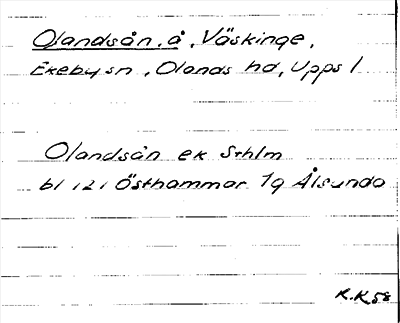 Olandsån, å, Väskinge,
Ekeby sn, Olands hd, Upps l
Olandsån ek Sthlm
bl 121 Östhammar 1g Ålsunda
K.K 58